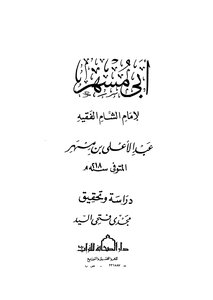 أبي مسهر
لإمام الشام الفقيه
عبد الأعلى بن مسهر
المتوفى سنة ٢١٨ هـ
دراسة وتحقيق
مجدي فتحي السيد
دار الصحابة للتراث